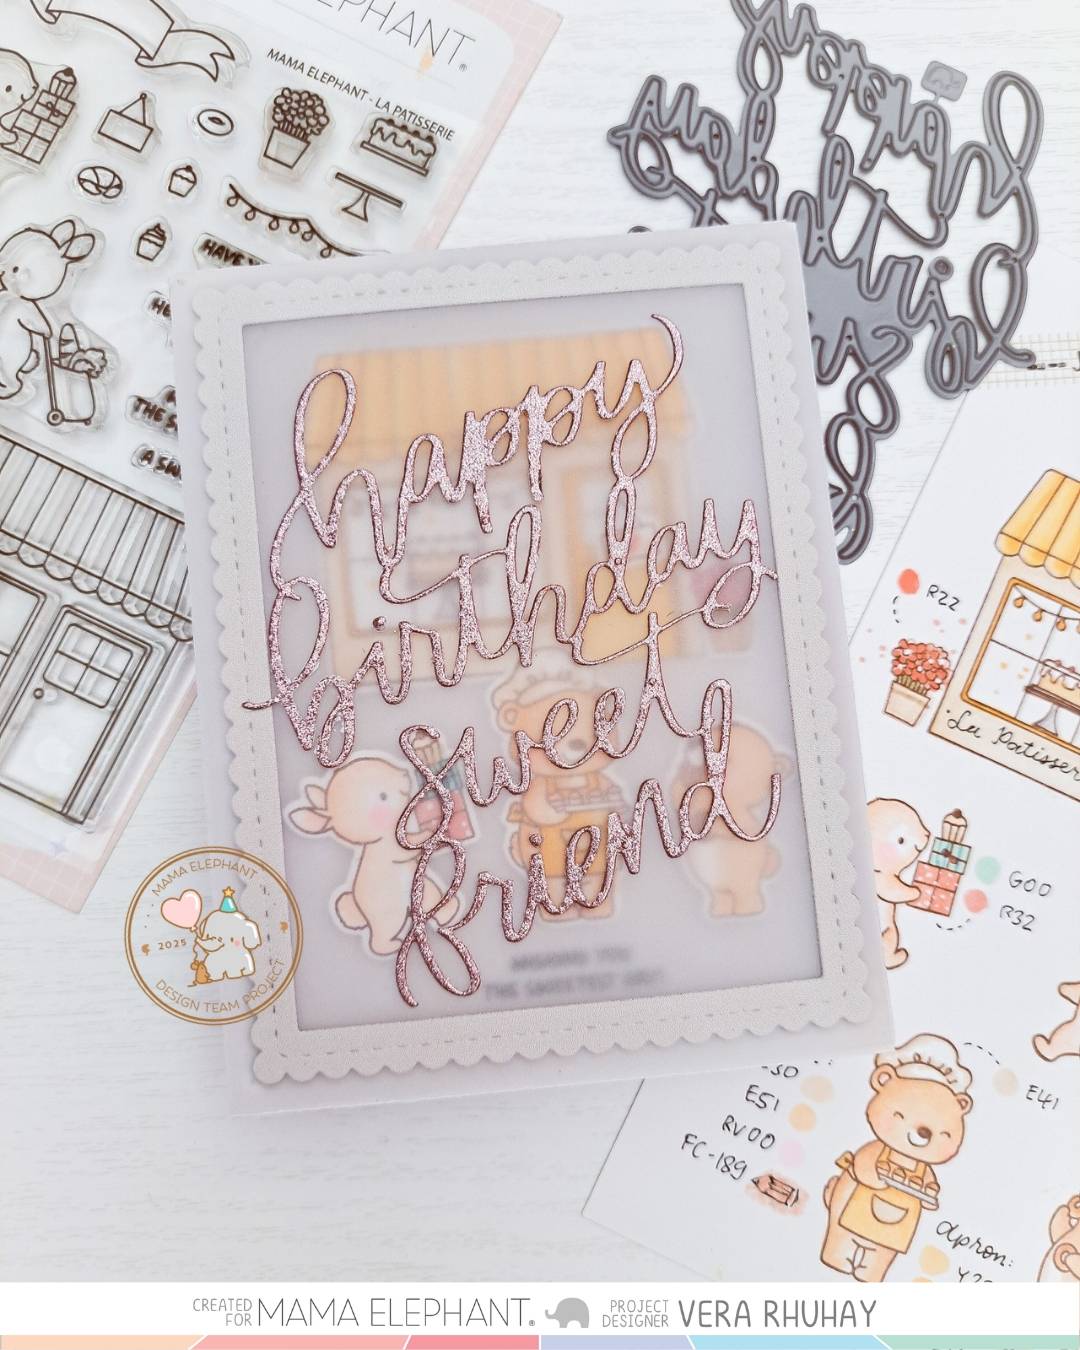 MAMA ELEPHANT®
MAMA ELEPHANT - LA PATISSERIE
HAVE
THE S
A SW
happy
birthday
sweet
friend
THE SWEETEST
R22
La Patisser
G00
R32
E41
E51
RV00
FC-189
apron:
MAMA ELEPHANT
2025
DESIGN TEAM PROJECT
CREATED FOR MAMA ELEPHANT® PROJECT DESIGNER VERA RHUHAY